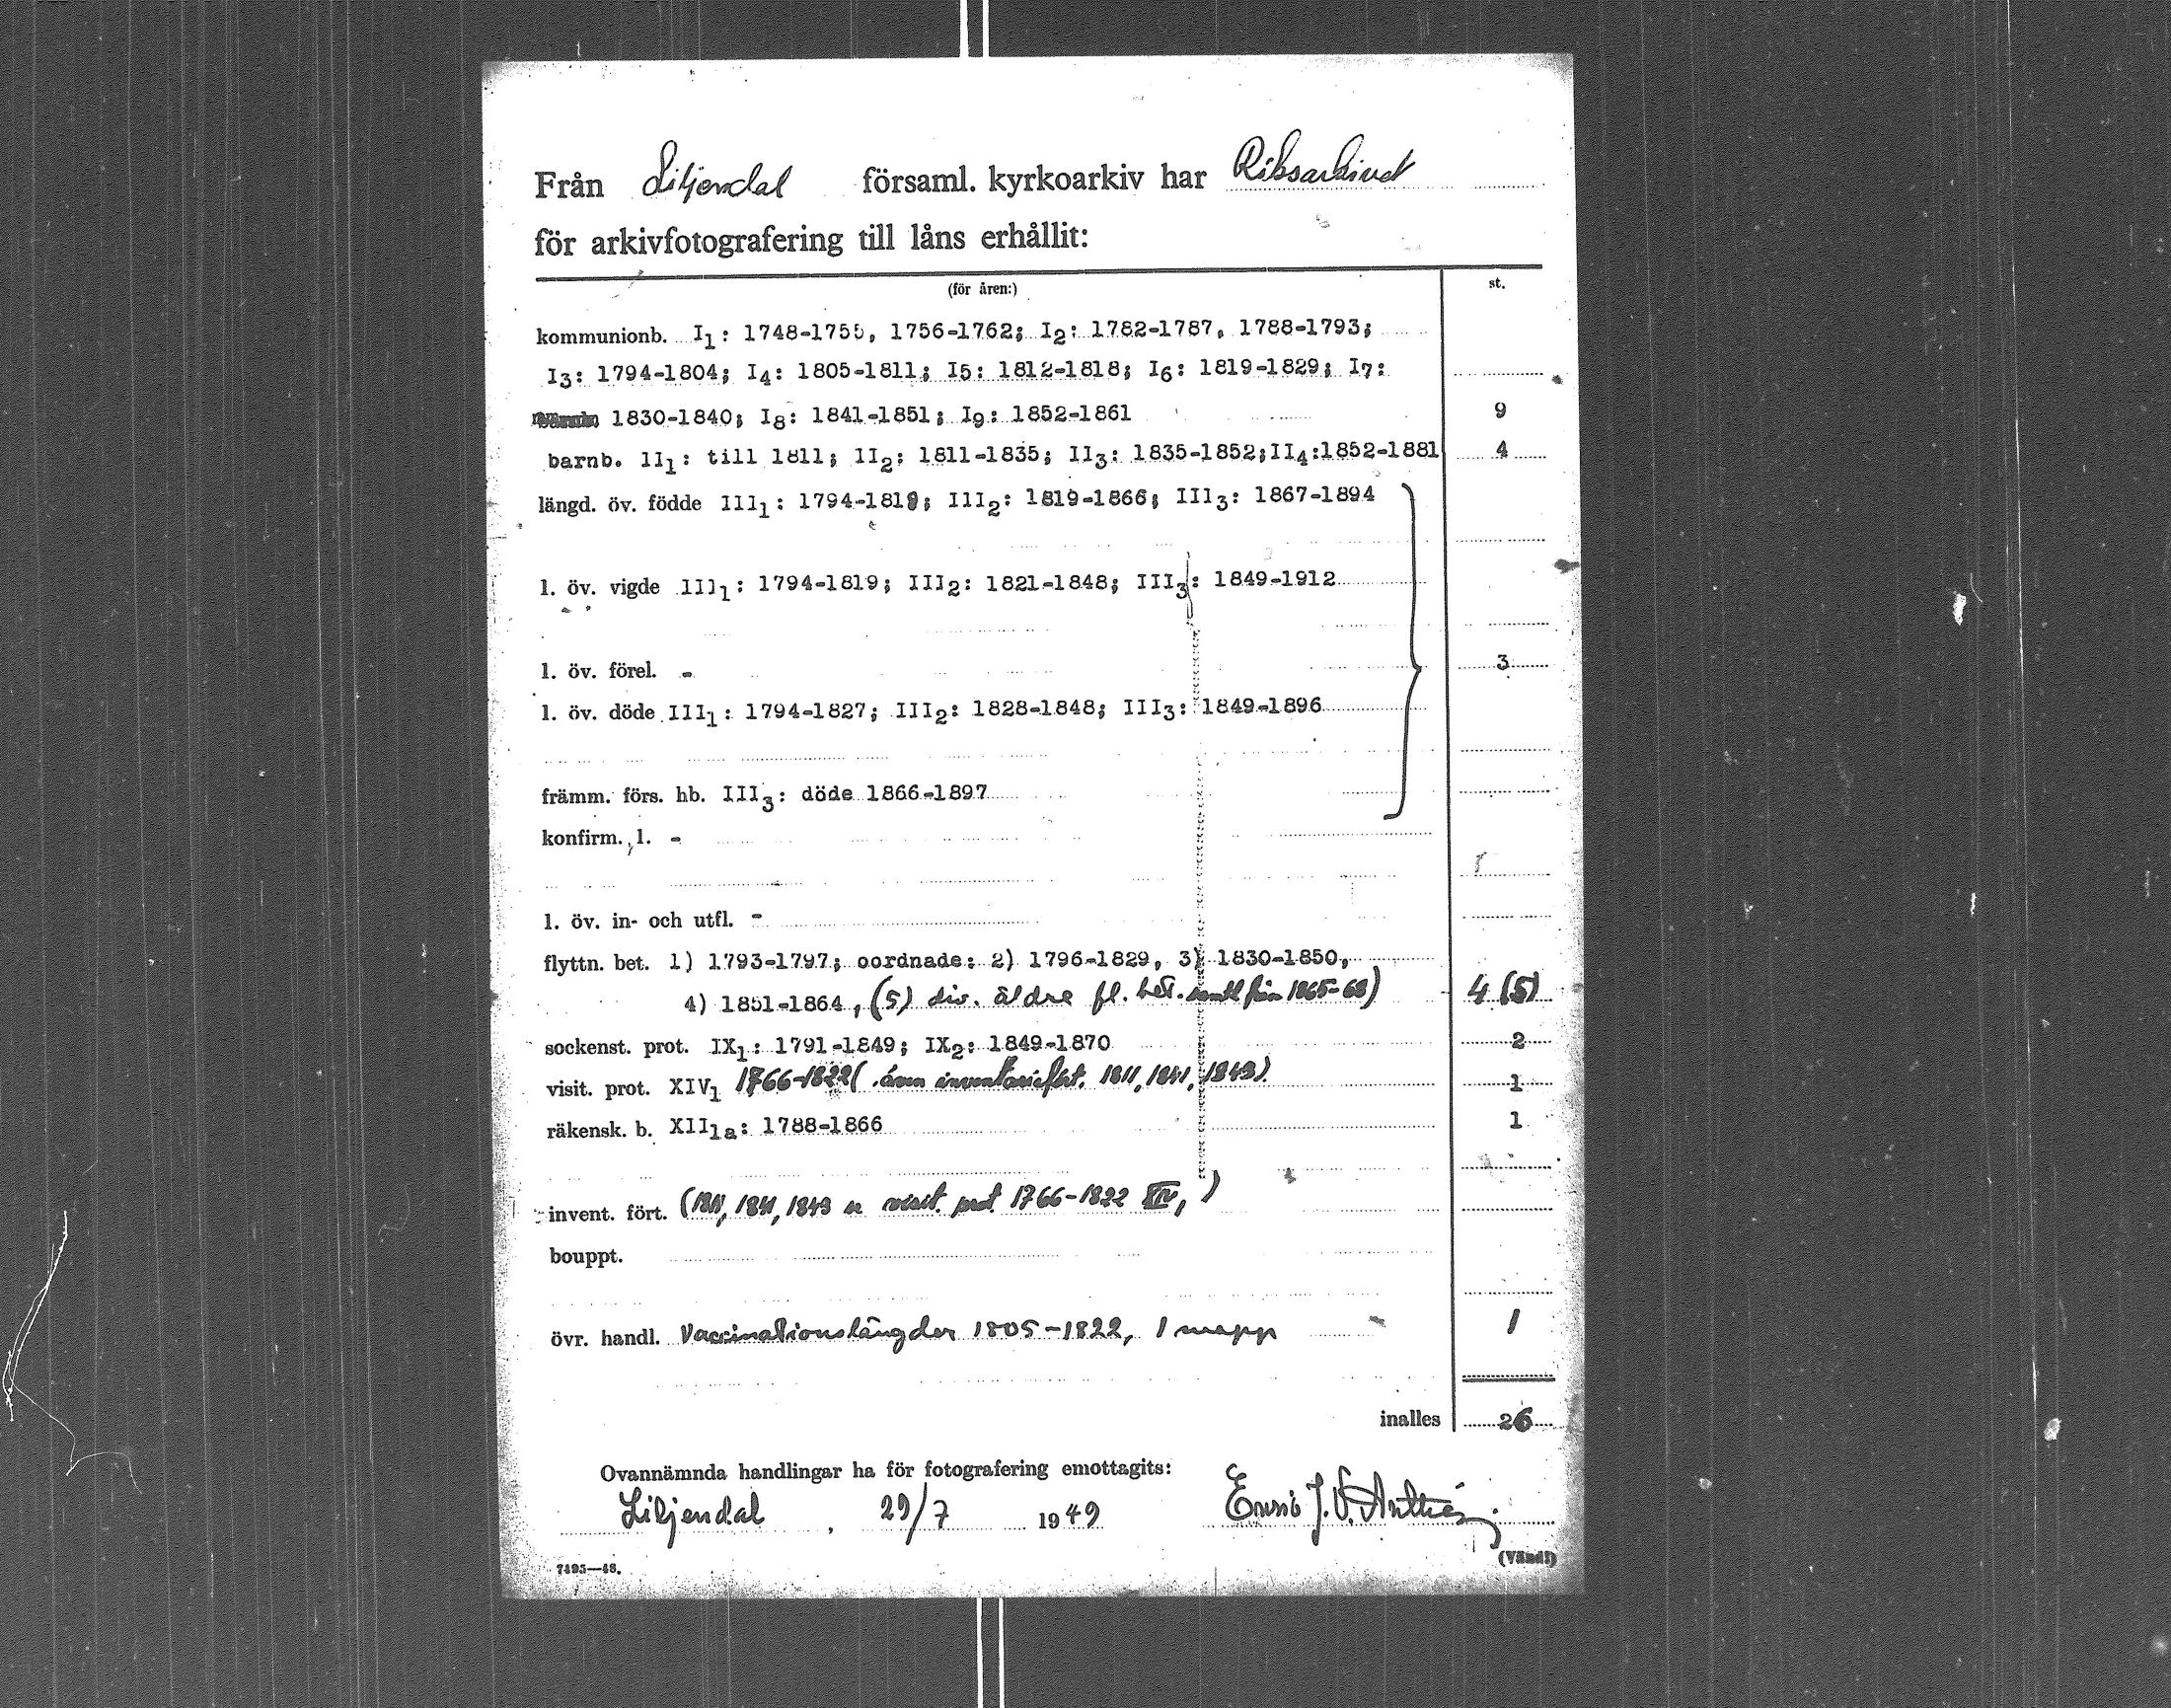 Från Liljendal församl. kyrkoarkiv har Riksarkivet
för arkivfotografering till låns erhållit:
(för åren:) st.
kommunionb. I1: 1748-1755, 1756-1762; I2: 1782-1787, 1788-1793;
I3: 1794-1804; I4: 1805-1811; I5: 1812-1818; I6: 1819-1829; I7:
1830-1840; I8: 1841-1851; I9: 1852-1861 9
barnb. II1: till 1811; II2: 1811-1835; II3: 1835-1852;II4:1852-1881 4
längd. öv. födde III1: 1794-1819; III2: 1819-1866; III3: 1867-1894
l. öv. vigde III1: 1794-1819; III2: 1821-1848; III3: 1849-1912
l. öv. förel. - 3
l. öv. döde III1: 1794-1827; III2: 1828-1848; III3: 1849-1896
främm. förs. hb. III3: döde 1866-1897
konfirm. l. -
l. öv. in- och utfl. -
flyttn. bet. 1) 1793-1797; oordnade: 2) 1796-1829, 3) 1830-1850,
4) 1851-1864, (5) div. äldre fl. bet. samtl från 1865-68) 4 (5)
sockenst. prot. IX1: 1791-1849; IX2: 1849-1870 2
visit. prot. XIV1 1766-1822( även inventariefört. 1811, 1841, 1843) 1
räkensk. b. XII1a: 1788-1866 1
invent. fört. (1811, 1841, 1843 se visit. prot 1766-1822 XIV1)
bouppt.
övr. handl. Vaccinationslängder 1805-1822, 1 mapp 1
inalles 26
Ovannämnda handlingar ha för fotografering emottagits:
Liljendal, 29/7 1949 J. V.
7495—48.
(Vänd!)